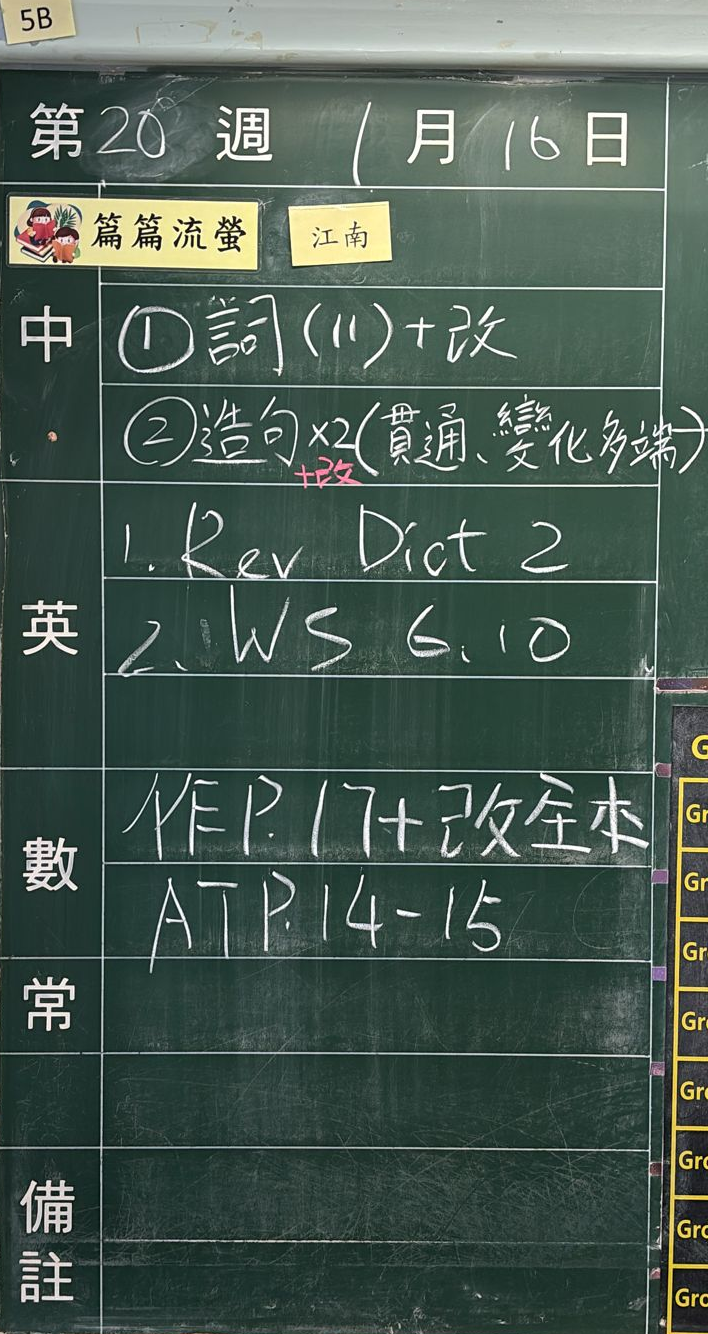 5B
第20週 1月16日
篇篇流螢 江南
中 ①詞(11)+改
②造句×2(貫通、變化多端)
+改
英 1. Rev Dict 2
2. WS 6.10
數 作E P.17+改全本
AT P.14-15
常
備註
G
Gr
Gr
Gr
Gro
Gro
Gro
Gro
Gro